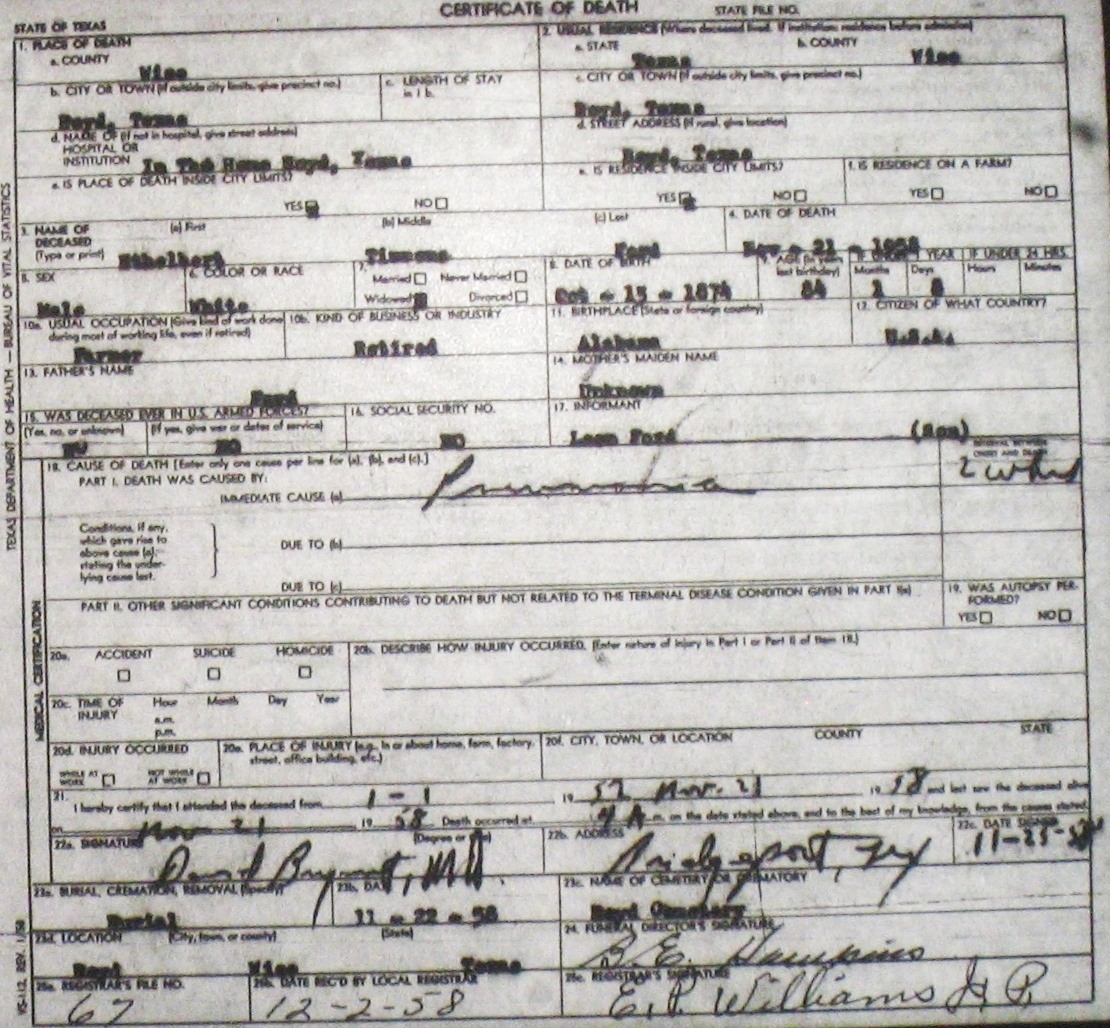 CERTIFICATE OF DEATH
STATE OF TEXAS
STATE FILE NO.
1. PLACE OF DEATH
a. COUNTY
Wise
2. USUAL RESIDENCE (Where deceased lived. If institution: residence before admission)
a. STATE
Texas
b. COUNTY
Wise
b. CITY OR TOWN (If outside city limits, give precinct no.)
Boyd, Texas
c. LENGTH OF STAY in 1 b.
c. CITY OR TOWN (If outside city limits, give precinct no.)
Boyd, Texas
d. NAME OF (If not in hospital, give street address) HOSPITAL OR INSTITUTION
In The Home Boyd, Texas
d. STREET ADDRESS (If rural, give location)
Boyd, Texas
e. IS PLACE OF DEATH INSIDE CITY LIMITS?
YES NO
e. IS RESIDENCE INSIDE CITY LIMITS?
YES NO
f. IS RESIDENCE ON A FARM?
YES NO
3. NAME OF DECEASED (Type or print)
(a) First
Ethelbert
(b) Middle
Timmons
(c) Last
Ford
4. DATE OF DEATH
Nov - 21 - 1958
5. SEX
Male
6. COLOR OR RACE
White
7.
Married Never Married
Widowed Divorced
8. DATE OF BIRTH
Oct - 13 - 1874
9. AGE (In years last birthday)
84
IF UNDER 1 YEAR
Months 1
Days 8
IF UNDER 24 HRS.
Hours Minutes
10a. USUAL OCCUPATION (Give kind of work done during most of working life, even if retired)
Farmer
10b. KIND OF BUSINESS OR INDUSTRY
Retired
11. BIRTHPLACE (State or foreign country)
Alabama
12. CITIZEN OF WHAT COUNTRY?
U.S.A.
13. FATHER'S NAME
Ford
14. MOTHER'S MAIDEN NAME
Unknown
15. WAS DECEASED EVER IN U.S. ARMED FORCES?
(Yes, no, or unknown)
NO
(If yes, give war or dates of service)
NO
16. SOCIAL SECURITY NO.
NO
17. INFORMANT
Leon Ford (Son)
MEDICAL CERTIFICATION
18. CAUSE OF DEATH [Enter only one cause per line for (a), (b), and (c).]
INTERVAL BETWEEN ONSET AND DEATH
PART I. DEATH WAS CAUSED BY:
IMMEDIATE CAUSE (a) Pneumonia
2 wks
Conditions, if any, which gave rise to above cause (a), stating the underlying cause last.
DUE TO (b)
DUE TO (c)
PART II. OTHER SIGNIFICANT CONDITIONS CONTRIBUTING TO DEATH BUT NOT RELATED TO THE TERMINAL DISEASE CONDITION GIVEN IN PART I(a)
19. WAS AUTOPSY PERFORMED?
YES NO
20a. ACCIDENT SUICIDE HOMICIDE
20b. DESCRIBE HOW INJURY OCCURRED. (Enter nature of injury in Part I or Part II of Item 18.)
20c. TIME OF INJURY
Hour Month Day Year
a.m.
p.m.
20d. INJURY OCCURRED
WHILE AT WORK NOT WHILE AT WORK
20e. PLACE OF INJURY (e.g., in or about home, farm, factory, street, office building, etc.)
20f. CITY, TOWN, OR LOCATION COUNTY STATE
21. I hereby certify that I attended the deceased from 1-1 19 52 Nov. 21 19 58 and last saw the deceased alive
on Nov 21 19 58 Death occurred at A m. on the date stated above, and to the best of my knowledge, from the causes stated.
22a. SIGNATURE (Degree or title)
David Bryant, MD.
22b. ADDRESS
Bridgeport, Tex
22c. DATE SIGNED
11-25-58
23a. BURIAL, CREMATION, REMOVAL (Specify)
Burial
23b. DATE
11 - 22 - 58
23c. NAME OF CEMETERY OR CREMATORY
Boyd Cemetery
23d. LOCATION (City, town, or county) (State)
Boyd Wise Texas
24. FUNERAL DIRECTOR'S SIGNATURE
B.E. Hawkins
25a. REGISTRAR'S FILE NO.
67
25b. DATE REC'D BY LOCAL REGISTRAR
12-2-58
25c. REGISTRAR'S SIGNATURE
E.P. Williams J.P.
TEXAS DEPARTMENT OF HEALTH — BUREAU OF VITAL STATISTICS
VS-112 REV. 1/58